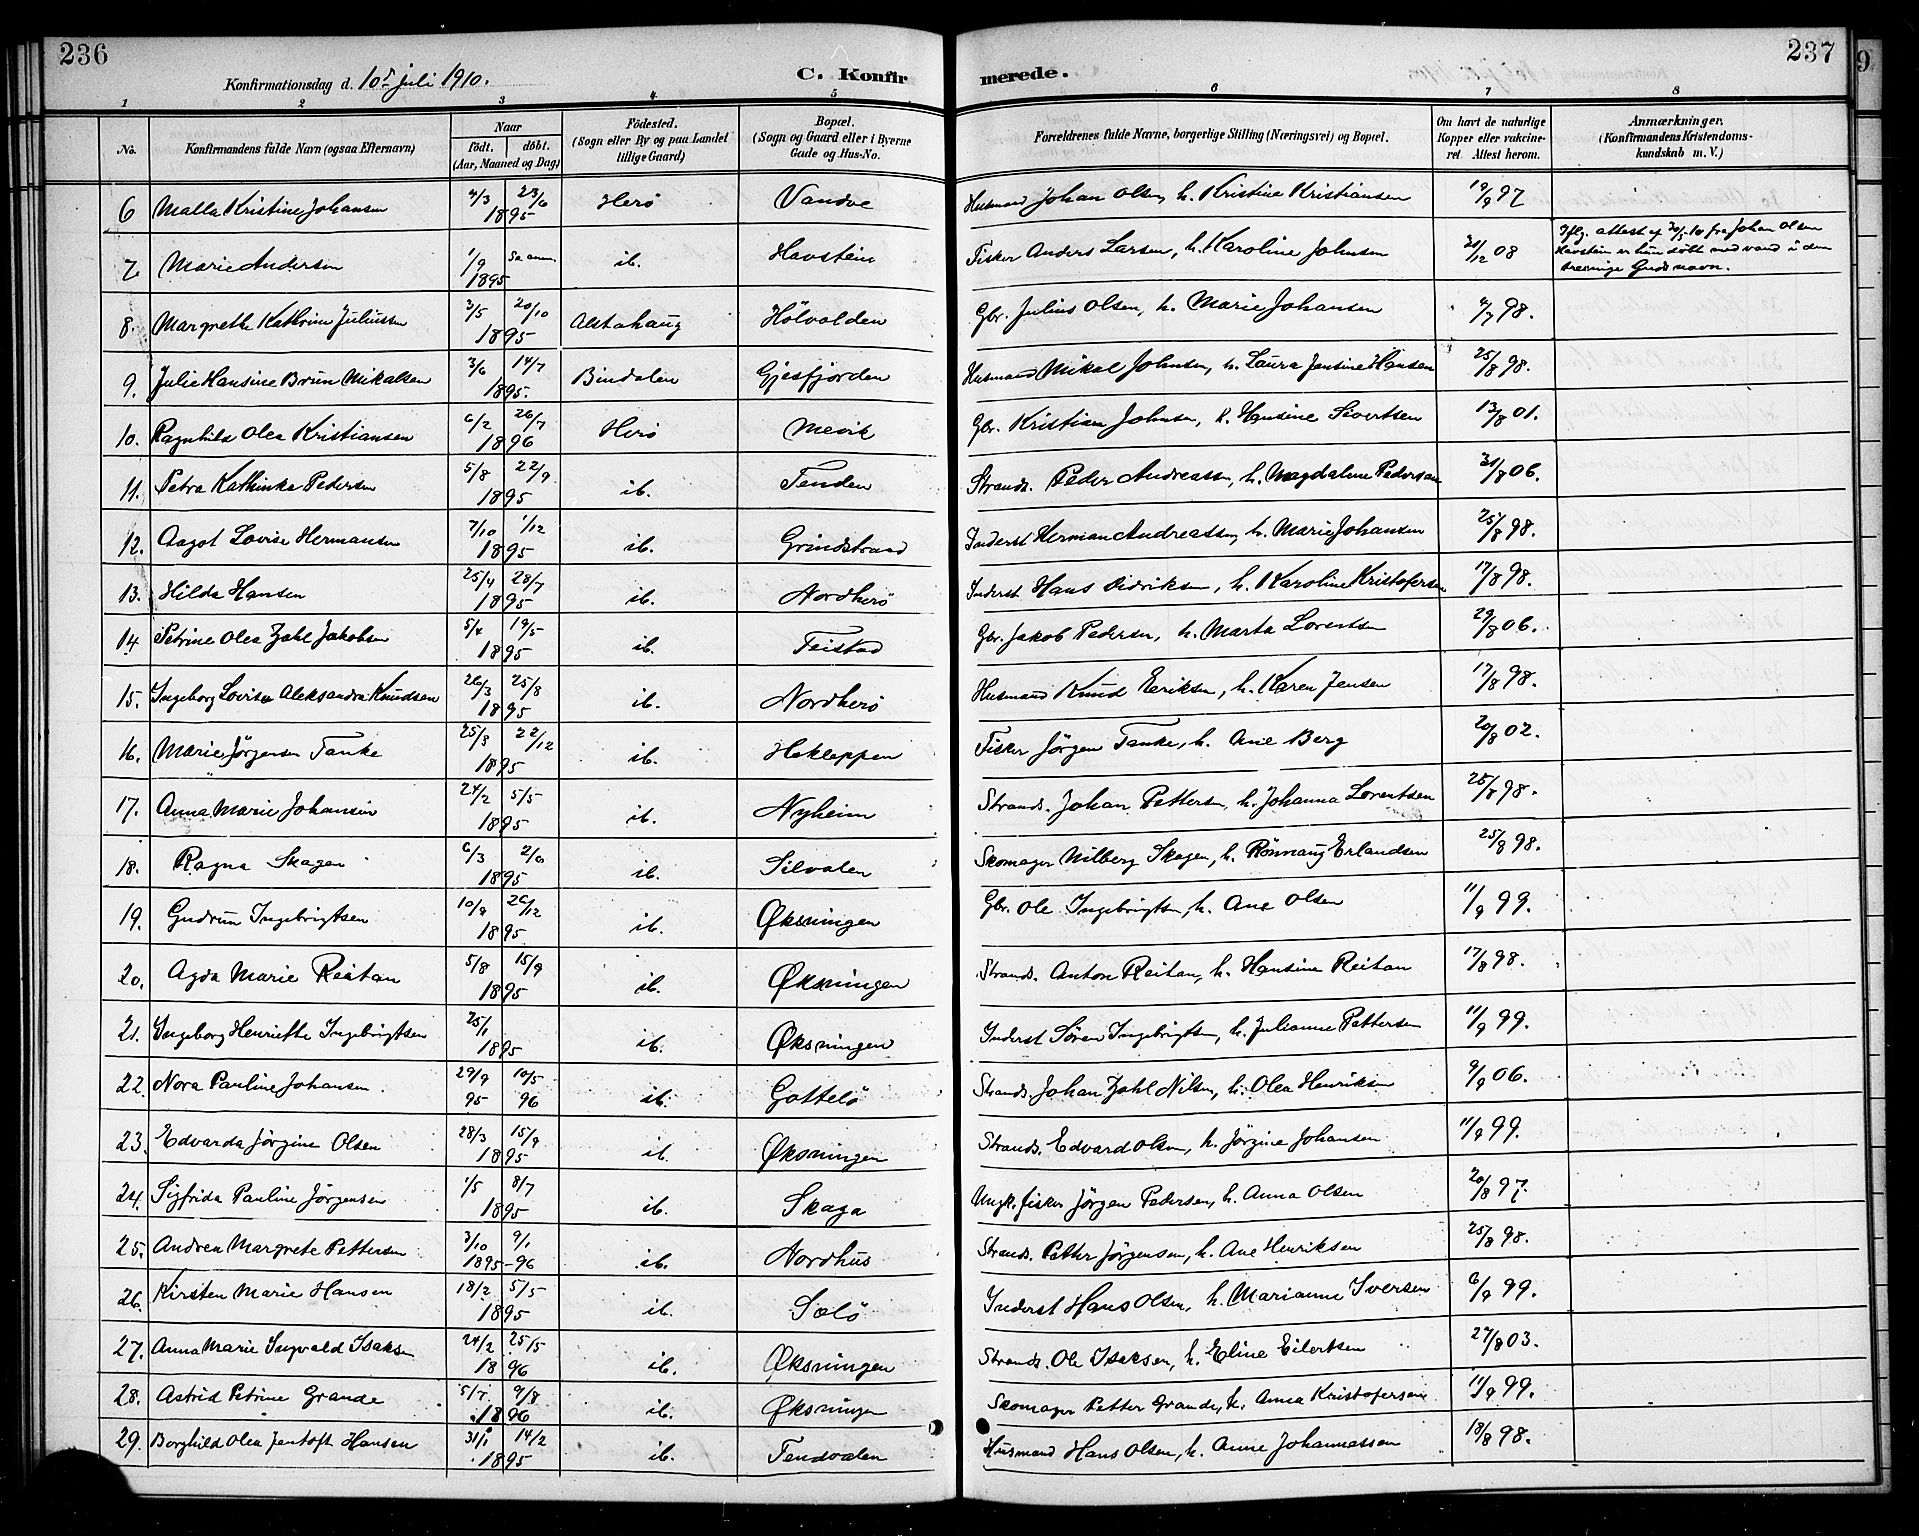 236
237
9
Konfirmationsdag d. 10de juli 1910.
C. Konfir
merede.
1 2 3 4 5 6 7 8
No. Konfirmandens fulde Navn (ogsaa Efternavn) Naar født. døbt. (Aar, Maaned og Dag) Fødested. (Sogn eller By og paa Landet tillige Gaard) Bopæl. (Sogn og Gaard eller i Byerne Gade og Hus-No. Forældrenes fulde Navne, borgerlige Stilling (Næringsvei) og Bopæl. Om havt de naturlige Kopper eller vakcineret. Attest herom. Anmærkninger. (Konfirmandens Kristendomskundskab m. V.)
6 Malla Kristine Johansen 4/3 23/6 1895 Herö Vandve Husmand Johan Olsen, h. Kristine Kristiansen 19/9 97
7. Marie Andersen 1/9 Sa. ann. 1895 ib. Havstein Fisker Anders Larsen, h. Karoline Johnsen 30/12 08 Iflg. attest af 20/5 10 fra Johan Olsen Havstein er hun döbt med vand i den treenige Guds navn.
8. Margrethe Kathrine Juliussen 3/5 20/10 1895 Alstahaug Hölvolden Gbr. Julius Olsen, h. Marie Johansen 4/7 98.
9. Julie Hansine Brun Mikalsen 3/6 14/7 1895. Bindalen Gjesfjorden Husmand Mikal Johnsen, h. Laura Jensine Hansen 25/8 98.
10. Ragnhild Olea Kristiansen 6/2 26/7 1896 Herö Mevik Gbr. Kristian Johnsen, h. Hansine Sivertsen 13/8 01.
11. Petra Kathinka Pedersen 5/8 22/9 1895 ib. Tenden Strands. Peder Andreassen, h. Magdalene Pedersen 31/8 06.
12. Aagot Lovise Hermansen 7/10 1/12 1895 ib. Grindstrand Inderst Herman Andreassen, h. Marie Johansen 25/8 98.
13. Hilda Hansen 25/4 28/7 1895 ib. Nordherö Inderst Hans Didriksen, h. Karoline Kristofersen 17/8 98.
14 Petrine Olea Zahl Jakobsen 5/4 19/5 1895 ib. Teistad Gbr. Jakob Pedersen, h. Marta Lorentsen 29/8 06.
15. Ingeborg Lovise Aleksandra Knudsen 26/3 25/8 1895 ib. Nordherö Husmand Knud Eeriksen, h. Karen Jensen 17/8 98.
16. Marie Jörgensen Tanke 25/8 22/12 1895 ib. Hekleppen Fisker Jörgen Tanke, h. Ane Berg 20/8 02.
17. Anna Marie Johansen 24/2 5/5 1895 ib. Nyheim Strands. Johan Pettersen, h. Johanna Lorentsen 25/8 98.
18. Ragna Skagen 6/3 2/6 1895 ib. Silvalen Skomager Milberg Skagen, h. Rönnaug Erlandsen 25/8 98.
19. Gudrun Ingebrigtsen 10/9 26/12 1895 ib. Øksningen Gbr. Ole Ingebrigtsen, h. Ane Olsen 11/9 99.
20. Agda Marie Reitan 5/8 15/9 1895 ib. Øksningen Strands. Anton Reitan, h. Hansine Reitan 17/8 98.
21. Ingeborg Henriette Ingebrigtsen 25/1 1895 ib. Øksningen Inderst Sören Ingebrigtsen, h. Julianne Pettersen 11/9 99.
22. Nora Pauline Johansen 29/9 95 10/5 96 ib. Gottelö Strands. Johan Zahl Nilsen, h. Olea Henriksen 9/9 06.
23. Edvarda Jörgine Olsen 28/3 15/9 1895 ib. Øksningen Strands. Edvard Olsen, h. Jörgine Johansen 11/9 99.
24. Sigfrida Pauline Jörgensen 1/5 8/7 1895 ib. Skaga Ungk. fisker Jörgen Pedersen, h. Anna Olsen 20/8 97.
25. Andrea Margrete Pettersen 3/10 9/1 1895-96 ib. Nordhus Strands. Petter Jörgensen, h. Ane Henriksen 25/8 98.
26. Kirsten Marie Hansen 18/2 5/5 1895 ib. Sælö Inderst Hans Olsen, h. Marianne Iversen 6/9 99.
27. Anna Marie Ingvald Isaksen 24/2 25/5 1896 ib. Øksningen Strands. Ole Isaksen, h. Eline Eilertsen 27/8 03.
28. Astrid Petrine Grande 5/7 9/8 1896 ib. Øksningen Skomager Petter Grande, h. Anna Kristofersen 11/9 99.
29. Borghild Olea Jentoft Hansen 31/1 14/2 1895 ib. Tendvalen Husmand Hans Olsen, h. Anne Johannessen 18/8 98.